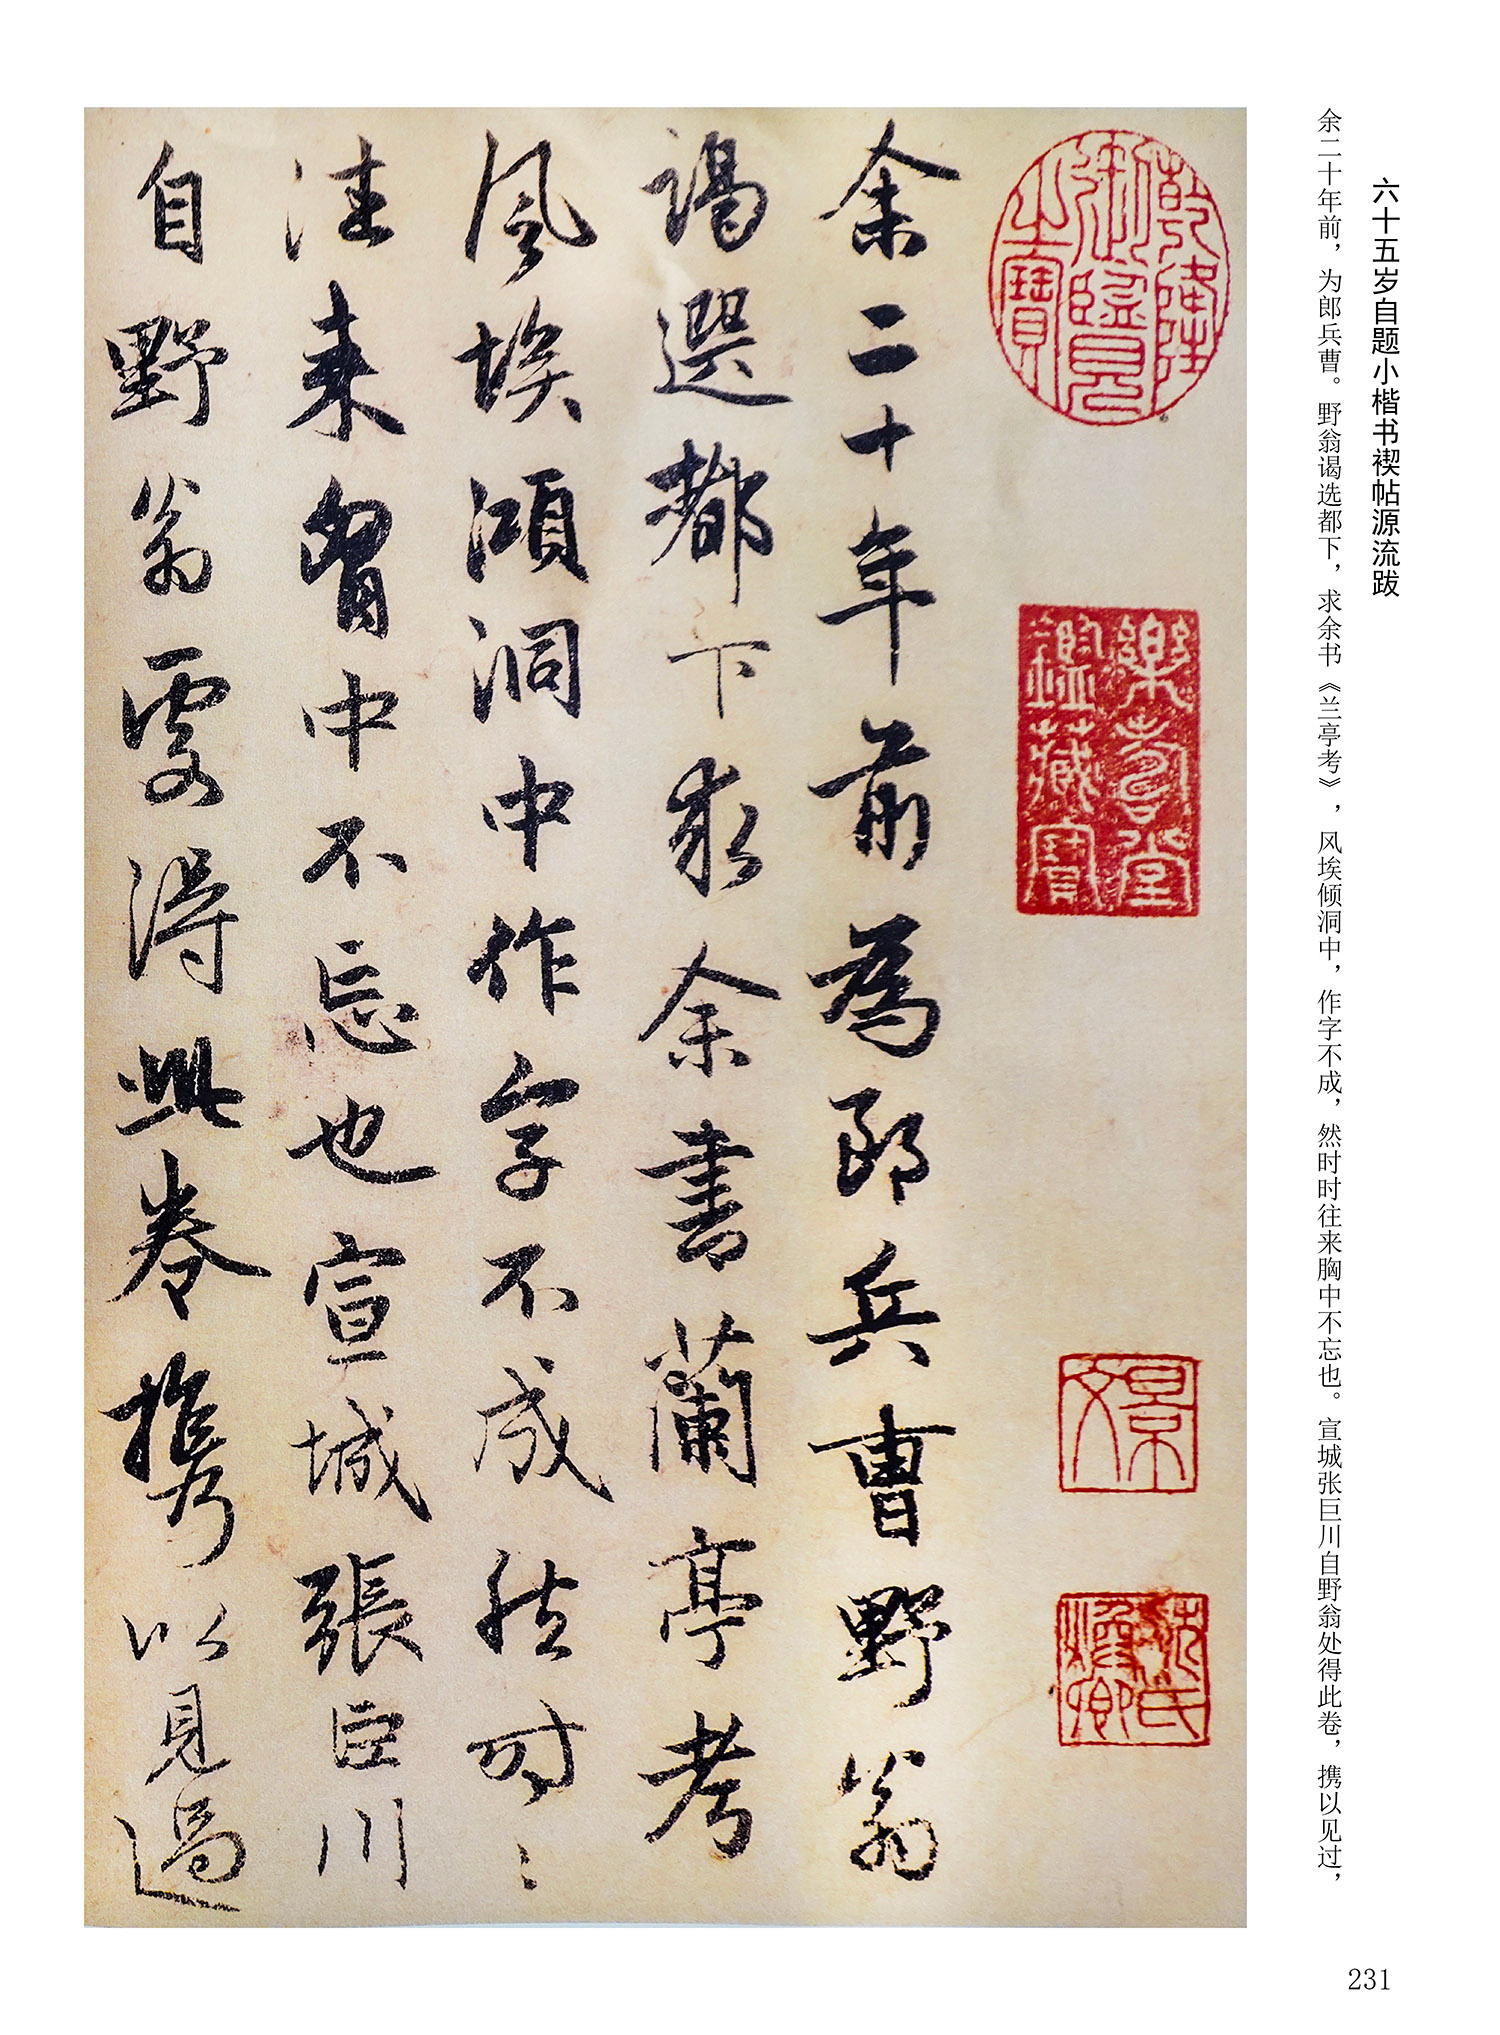 六十五岁自题小楷书禊帖源流跋
余二十年前，为郎兵曹。野翁谒选都下，求余书《兰亭考》，风埃倾洞中，作字不成，然时时往来胸中不忘也。宣城张巨川自野翁处得此卷，携以见过，
乾隆
御览
之宝
乐寿堂
鉴藏宝
景
文
沈氏
余二十年前為郎兵曹野翁
謁選都下求余書蘭亭考
風埃澒洞中作字不成然時〻
往来胷中不忘也宣城張巨川
自野翁處得此卷攜以見過
231